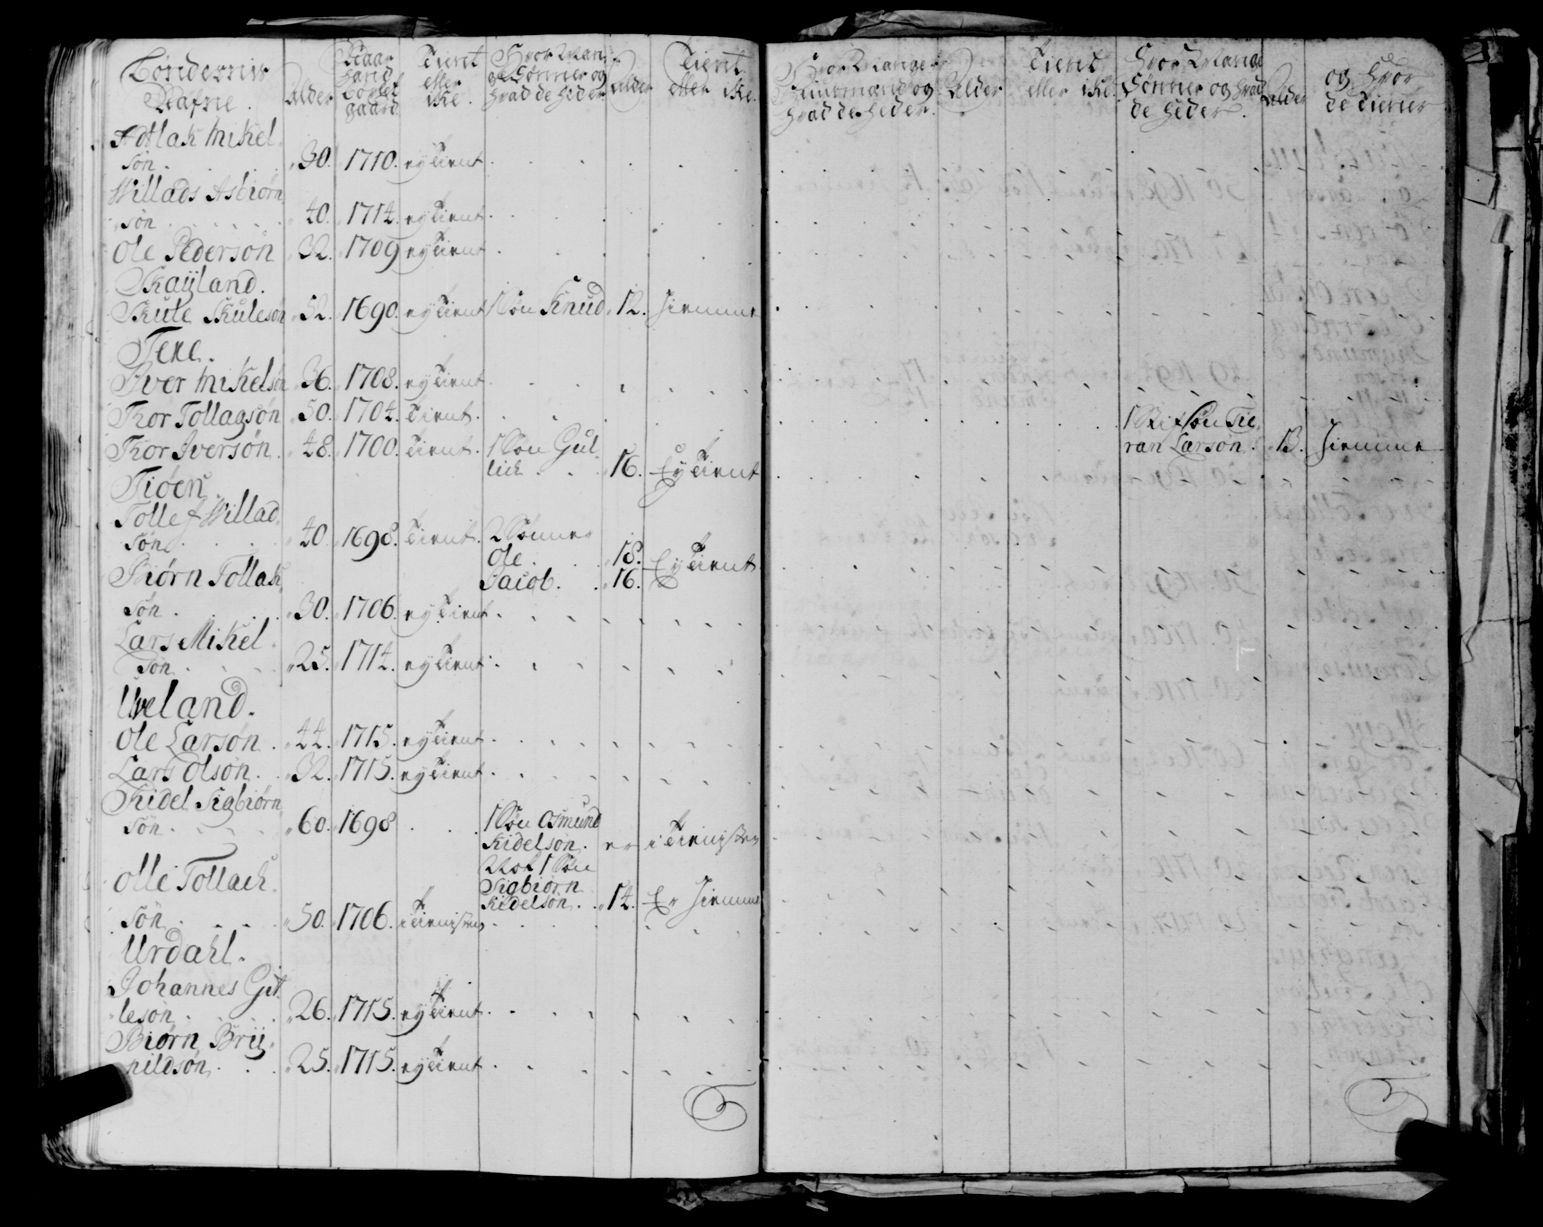 Bøndernis Nafne. Alder Naar hand bøxlet gaard Tient eller ike. Hvor Mange Sønner og hvad de heder Alder Tient eller ike.
Hvor Mange Huusmænd og hvad de heder. Alder Tient eller ike. Hvor Mange Sønner og hvad de heder. Alder og hvor de tiener
Adtlak Mikel
søn. 30. 1710. ey Tient
Willads Asbiørn
søn 40. 1714. ey Tient
Ole Pedersøn 32. 1709 ey Tient
Skayland.
Skule Skulesøn 52. 1690. ey Tient 1 Søn Knud 12. hiemme
Tene.
Iver Mikelsøn 36. 1708. ey Tient
Thor Tollagsøn 50. 1704. Tient.
Thor Iversøn. 48. 1700. Tient. 1 Søn Gul
lich 16. Ey Tient
1 Stifsøn Tie
ran Larsøn. 13. hiemme
Tiøen
Tollef Willad
Søn 40. 1698. Tient. 2 Sønner
Ole 18. Ey Tient
Jacob. 16.
Biørn Tollak
søn. 30. 1706. ey Tient
Lars Mikel
søn 25. 1714. ey Tient
Uveland.
Ole Larsøn. 44. 1715. ey Tient
Lars Olsøn. 32. 1715. ey Tient
Kidel Sigbiørn
søn. 60. 1698 1 Søn Osmund
Kidelsøn. er i Tienisten
Nok 1 Søn
Sigbiørn
Kidelsøn. 14. Er hiemme
Olle Tollach
søn. 50. 1706. i Tienisten
Urdahl.
Johannes Git
lesøn. 26. 1715. ey Tient
Biørn Bry
nildsøn. 25. 1715. ey Tient